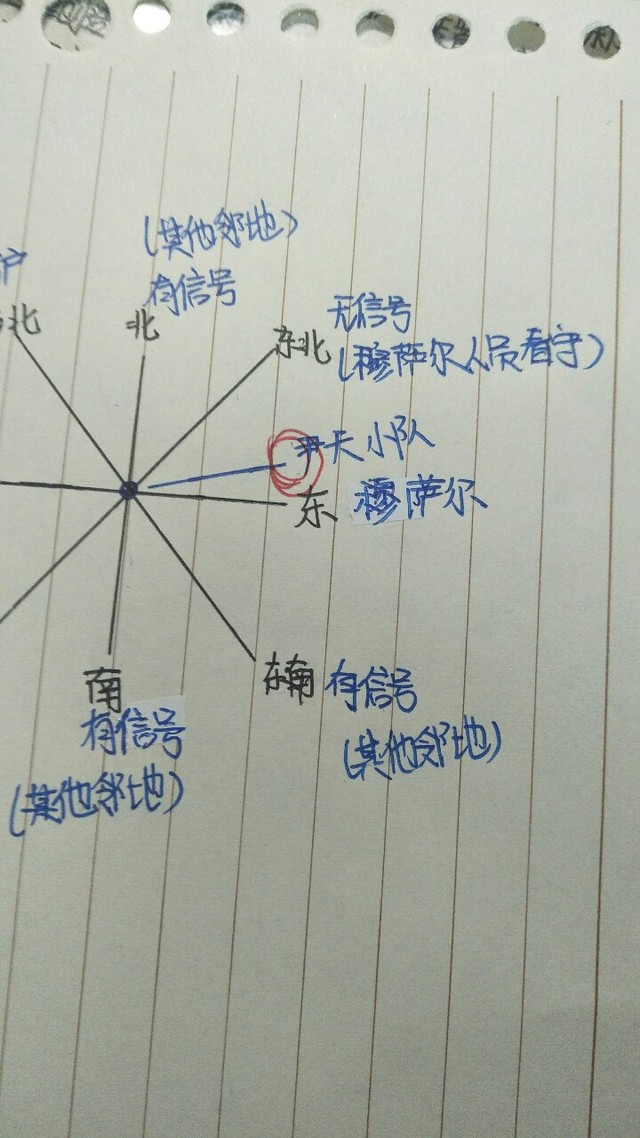 (其他邻地)
有信号
户
北
北
东北
无信号
(穆萨尔人员看守)
尹天小队
东
穆萨尔
东南
有信号
(其他邻地)
南
有信号
(其他邻地)